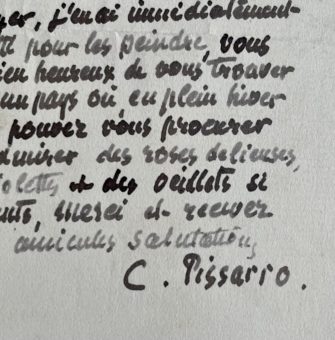 er, j'en ai immédiatement
pour les peindre, vous
ien heureux de vous trouver
un pays où, en plein hiver
pouvez vous procurer
dmirer des roses delieuses,
iolettes et des oeillets si
nts, merci et recever
amicales salutations
C. Pissarro.